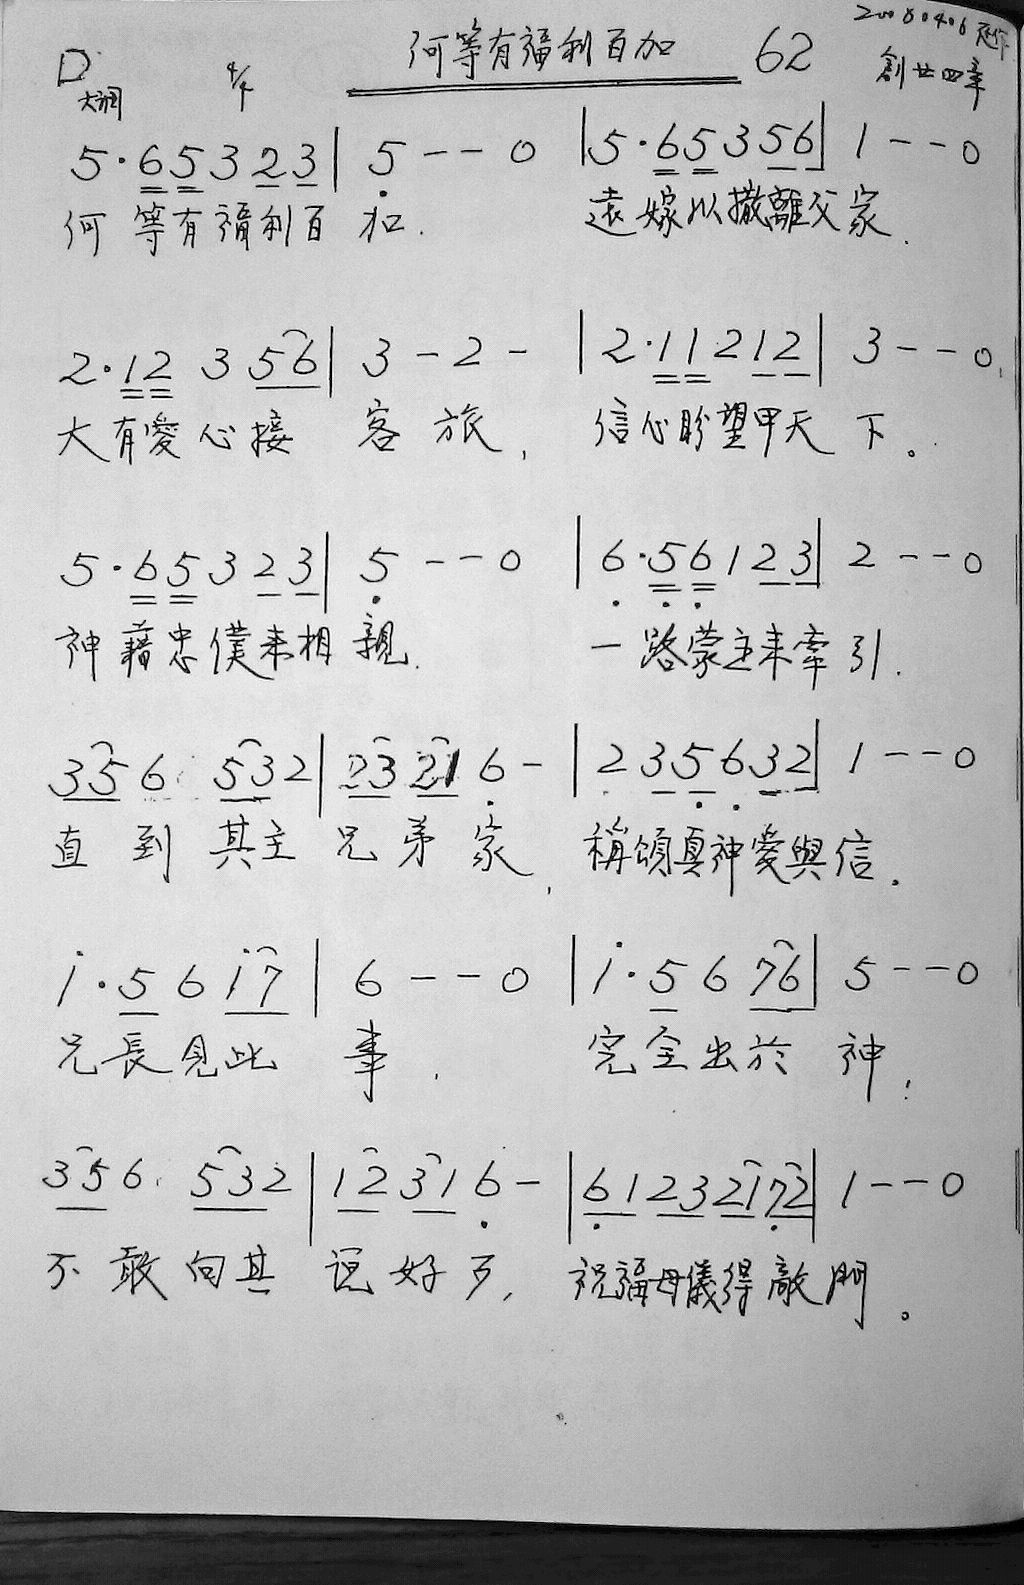 何等有福利百加 62 20080406
D大調 4/4 創廿四章
5·65323| 5--0 |5·65356| 1--0
何等有福利百加. 遠嫁以撒離父家.
2·12 3 56| 3-2- |2·11212| 3--0
大有愛心接客旅, 信心盼望甲天下。
5·65323| 5--0 |6·56123| 2--0
神藉忠僕來相親. 一路蒙主來牽引.
356. 532|23 21 6- |235632| 1--0
直到其主兄弟家, 稱頌真神愛與信。
i·56i7| 6--0 |i·5676| 5--0
兄長見此事, 完全出於神,
356. 532|12 31 6- |61232172| 1--0
不敢向其說好歹, 祝福母儀得敵門。